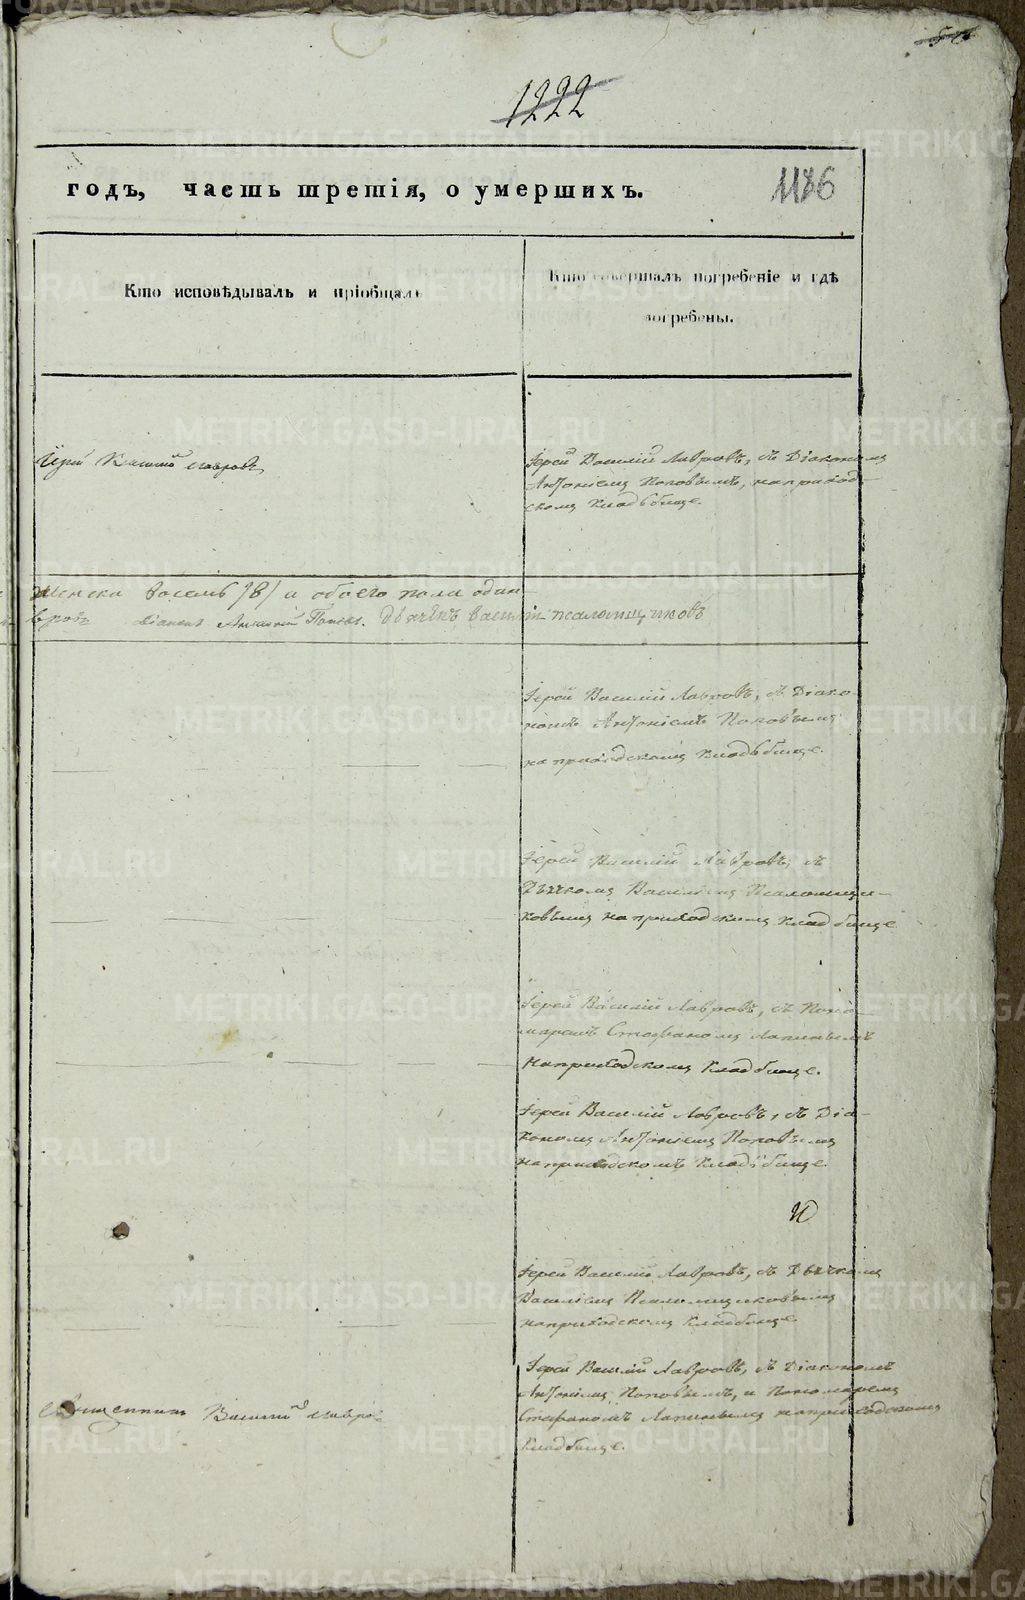 1222
1186
годъ, часть третія, о умершихъ.
Кто исповѣдывалъ и пріобщалъ
Кто совершалъ погребеніе и гдѣ
погребены.
Іерей Василій Лавровъ
Іерей Василій Лавровъ, съ Діакономъ
Антоніемъ Поповымъ, на приход-
скомъ кладбище.
женска восемь /8/ и обоего пола один-
вровъ діаконъ Антоній Поповъ. Дьячекъ Василій Псаломщиковъ
Іерей Василій Лавровъ, съ Діако-
номъ Антоніемъ Поповымъ
на приходскомъ кладбище.
Іерей Василій Лавровъ, съ
Дьячкомъ Василіемъ Псаломщи-
ковымъ на приходскомъ кладбище
Іерей Василій Лавровъ, съ Поно-
маремъ Стефаномъ Лапинымъ
на приходскомъ кладбище.
Іерей Василій Лавровъ, съ Діа-
кономъ Антоніемъ Поповымъ
на приходскомъ кладбище.
Іерей Василій Лавровъ, съ Дьячкомъ
Василіемъ Псаломщиковымъ
на приходскомъ кладбище
Священникъ Василій Лавровъ
Іерей Василій Лавровъ, съ Діакономъ
Антоніемъ Поповымъ, и Пономаремъ
Стефаномъ Лапинымъ на приходскомъ
кладбище.
METRIKI.GASO-URAL.RU